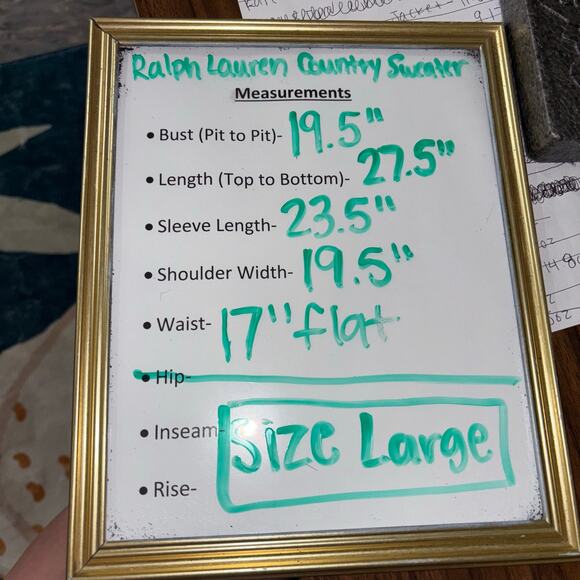 Jacket-
Ralph Lauren Country Sweater
Measurements
• Bust (Pit to Pit)- 19.5"
• Length (Top to Bottom)- 27.5"
• Sleeve Length- 23.5"
• Shoulder Width- 19.5"
• Waist- 17" flat
• Hip-
• Inseam-
Size Large
• Rise-